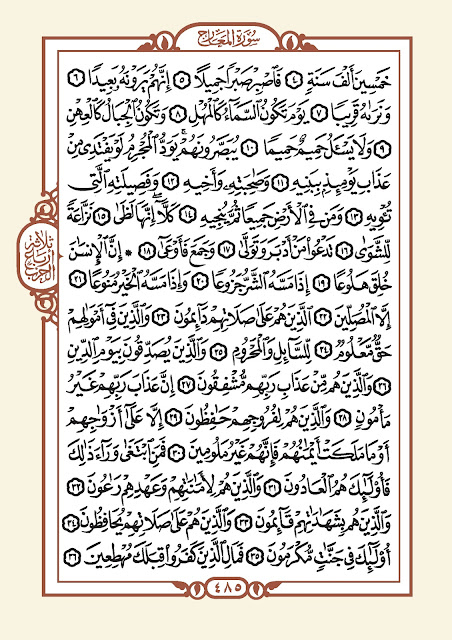 سُورَةُ المَعَارِج
خَمْسِينَ أَلْفَ سَنَةٍ ٤ فَاصْبِرْ صَبْرًا جَمِيلًا ٥ إِنَّهُمْ يَرَوْنَهُ بَعِيدًا ٦
وَنَرَاهُ قَرِيبًا ٧ يَوْمَ تَكُونُ السَّمَاءُ كَالْمُهْلِ ٨ وَتَكُونُ الْجِبَالُ كَالْعِهْنِ
٩ وَلَا يَسْـَٔلُ حَمِيمٌ حَمِيمًا ١٠ يُبَصَّرُونَهُمْ يَوَدُّ الْمُجْرِمُ لَوْ يَفْتَدِي مِنْ
عَذَابِ يَوْمِئِذٍ بِبَنِيهِ ١١ وَصَاحِبَتِهِ وَأَخِيهِ ١٢ وَفَصِيلَتِهِ الَّتِي
تُـْٔوِيهِ ١٣ وَمَن فِي الْأَرْضِ جَمِيعًا ثُمَّ يُنجِيهِ ١٤ كَلَّا إِنَّهَا لَظَىٰ ١٥ نَزَّاعَةً
لِّلشَّوَىٰ ١٦ تَدْعُوا مَنْ أَدْبَرَ وَتَوَلَّىٰ ١٧ وَجَمَعَ فَأَوْعَىٰ ١٨ * إِنَّ الْإِنسَـٰنَ
خُلِقَ هَلُوعًا ١٩ إِذَا مَسَّهُ الشَّرُّ جَزُوعًا ٢٠ وَإِذَا مَسَّهُ الْخَيْرُ مَنُوعًا ٢١
إِلَّا الْمُصَلِّينَ ٢٢ الَّذِينَ هُمْ عَلَىٰ صَلَاتِهِمْ دَائِمُونَ ٢٣ وَالَّذِينَ فِي أَمْوَالِهِمْ
حَقٌّ مَّعْلُومٌ ٢٤ لِّلسَّائِلِ وَالْمَحْرُومِ ٢٥ وَالَّذِينَ يُصَدِّقُونَ بِيَوْمِ الدِّينِ
٢٦ وَالَّذِينَ هُم مِّنْ عَذَابِ رَبِّهِم مُّشْفِقُونَ ٢٧ إِنَّ عَذَابَ رَبِّهِمْ غَيْرُ
مَأْمُونٍ ٢٨ وَالَّذِينَ هُمْ لِفُرُوجِهِمْ حَافِظُونَ ٢٩ إِلَّا عَلَىٰ أَزْوَاجِهِمْ
أَوْ مَا مَلَكَتْ أَيْمَـٰنُهُمْ فَإِنَّهُمْ غَيْرُ مَلُومِينَ ٣٠ فَمَنِ ابْتَغَىٰ وَرَاءَ ذَٰلِكَ
فَأُولَـٰئِكَ هُمُ الْعَادُونَ ٣١ وَالَّذِينَ هُمْ لِأَمَـٰنَـٰتِهِمْ وَعَهْدِهِمْ رَاعُونَ ٣٢
وَالَّذِينَ هُم بِشَهَـٰدَاتِهِمْ قَائِمُونَ ٣٣ وَالَّذِينَ هُمْ عَلَىٰ صَلَاتِهِمْ يُحَافِظُونَ ٣٤
أُولَـٰئِكَ فِي جَنَّـٰتٍ مُّكْرَمُونَ ٣٥ فَمَالِ الَّذِينَ كَفَرُوا قِبَلَكَ مُهْطِعِينَ ٣٦
ثلاثة
أرباع
الحزب
٤٨٥